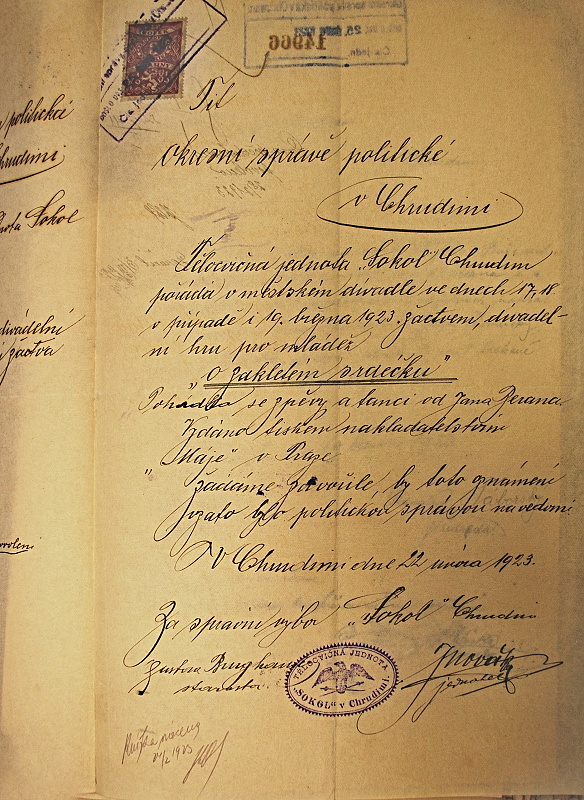 politikcí
Chrudimi
nota Sokol
divadelní
žactva
14966
Tit
okresní správě politické
v Chrudimi
Tělocvičná jednota "Sokol" Chrudim
pořádá v městském divadle ve dnech 17, 18
v případě i 19. března 1923 žactvem, divadel-
ní hru pro mládež
"O zakletém srdéčku"
Pohádka se zpěvy a tanci od Jana Berana
Vydáno tiskem nakladatelství
"Máje" v Praze
žádáme by toto oznámení
vzato bylo politickou správou na vědomí
V Chrudimi dne 22 února 1923.
Za správní výbor "Sokol" Chrudim
starosta. jednatel
TĚLOCVIČNÁ JEDNOTA
"SOKOL" v Chrudimi.